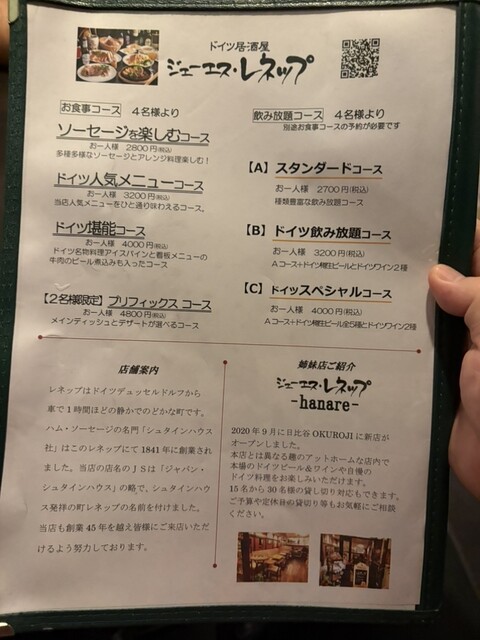 ドイツ居酒屋
ジェーエス・レネップ
お食事コース 4名様より
ソーセージを楽しむコース
お一人様 2800円(税込)
多種多様なソーセージとアレンジ料理楽しむ!
ドイツ人気メニューコース
お一人様 3200円(税込)
当店人気メニューをひと通り味わえるコース。
ドイツ堪能コース
お一人様 4000円(税込)
ドイツ名物料理アイスバインと看板メニューの
牛肉のビール煮込みも入ったコース
【2名様限定】プリフィックス コース
お一人様 4800円(税込)
メインディッシュとデザートが選べるコース
飲み放題コース 4名様より
別途お食事コースの予約が必要です
【A】スタンダードコース
お一人様 2700円(税込)
種類豊富な飲み放題コース
【B】ドイツ飲み放題コース
お一人様 3200円(税込)
Aコース+ドイツ樽生ビールとドイツワイン2種
【C】ドイツスペシャルコース
お一人様 4000円(税込)
Aコース+ドイツ樽生ビール全5種とドイツワイン2種
店舗案内
レネップはドイツデュッセルドルフから
車で1時間ほどの静かでのどかな町です。
ハム・ソーセージの名門「シュタインハウス
社」はこのレネップにて1841年に創業され
ました。当店の店名のJSは「ジャパン・
シュタインハウス」の略で、シュタインハウ
ス発祥の町レネップの名前を付けました。
当店も創業45年を越え皆様にご来店いただ
けるよう努力しております。
姉妹店ご紹介
ジェーエス・レネップ
-hanare-
2020年9月に日比谷OKUROJIに新店が
オープンしました。
本店とは異なる趣のアットホームな店内で
本場のドイツビール&ワインや自慢の
ドイツ料理をお楽しみいただけます。
15名から30名様の貸し切り対応もできます。
ご予算や定休日の貸切り等もお気軽にご相談
ください。